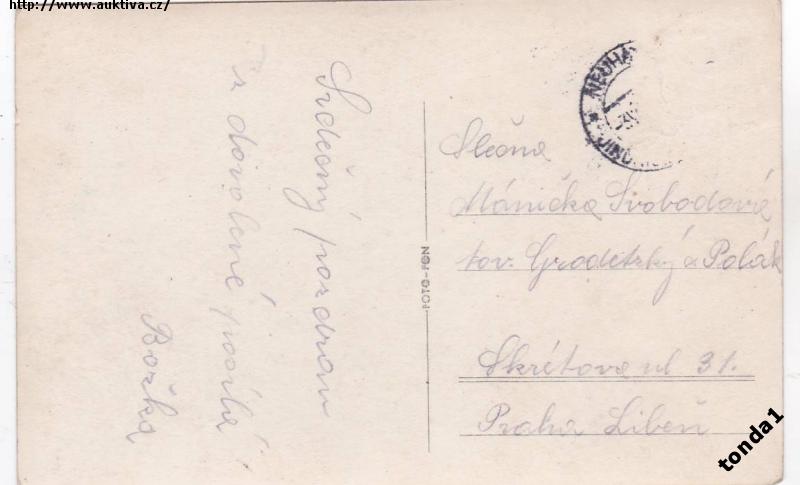 http://www.auktiva.cz/
Srdečný pozdrav
z dovolené posílá
Božka
FOTO-FON
NEUHA
JINDŘ
Slečna
Mánička Svobodová
tov. Grodetzký a Polák
Skrétova ul 31.
Praha Libeň
tonda1